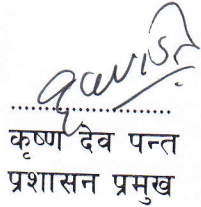 कृष्ण देव पन्त
प्रशासन प्रमुख